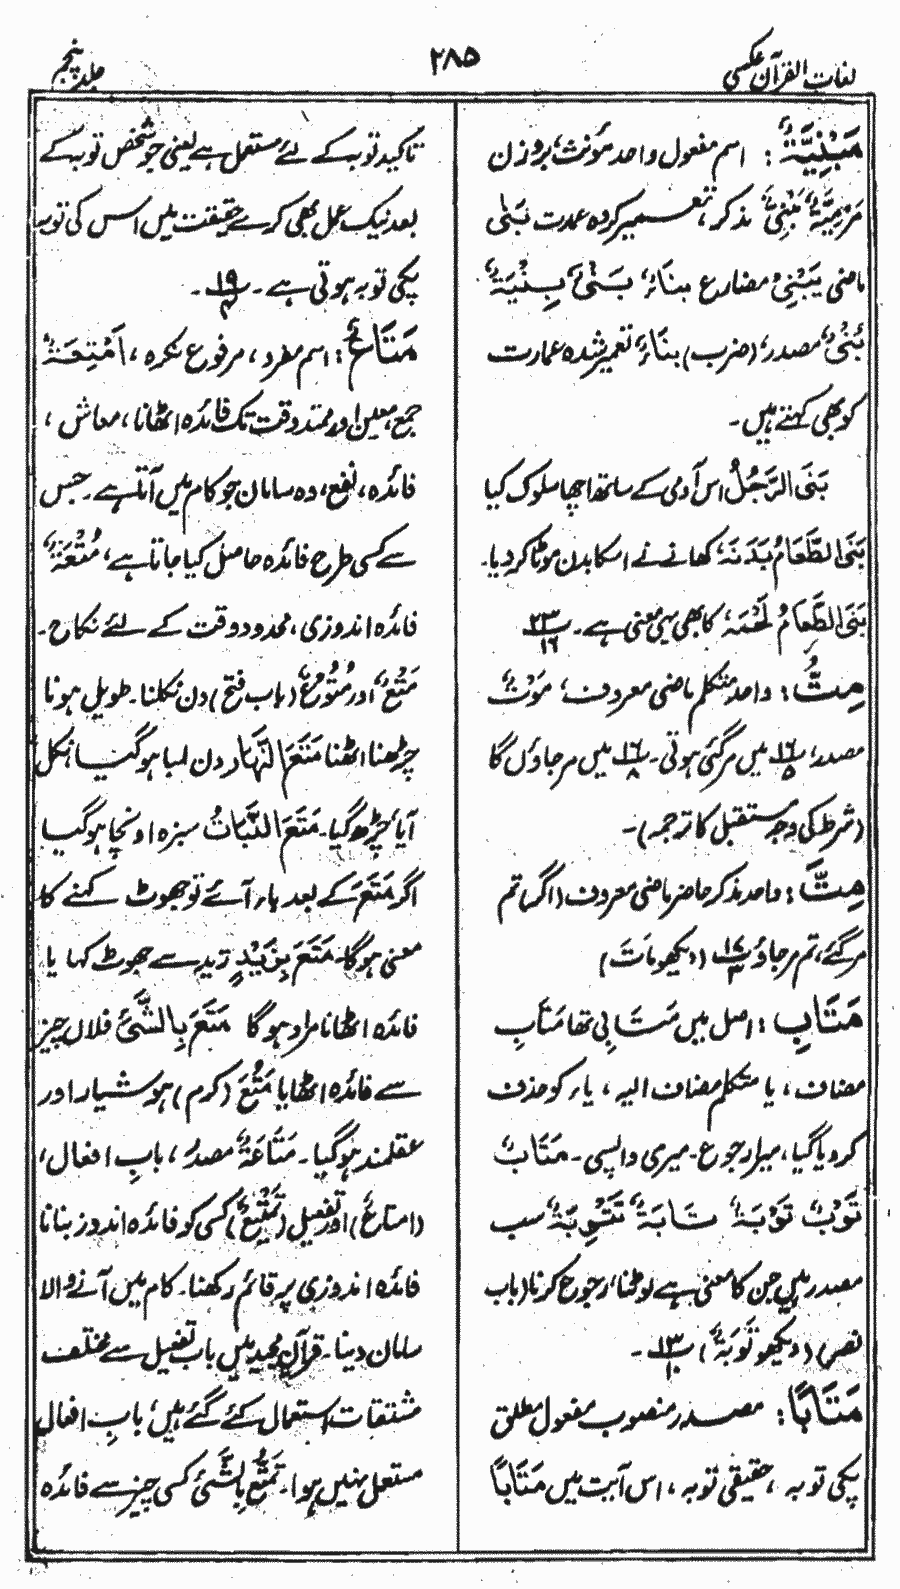 لغات القرآن عکسی
۲۸۵
جلد پنجم
مَبْنِيَّةٌ: اسم مفعول واحد مؤنث، بروزن
مَرْمِيَّةٌ، مَبْنِیٌّ، مذکر، تعمیر کردہ عمارت بَنٰی
ماضی یَبْنِیْ مضارع بِنَاءٌ، بَنْیٌ، بِنْیَةٌ،
بُنْیٌ، مصدر، (ضرب) بِنَاءٌ، تعمیر شدہ عمارت
کو بھی کہتے ہیں۔
بَنَی الرَّجُلُ اس آدمی کے ساتھ اچھا سلوک کیا
بَنَی الطَّعَامُ بَدَنَهٗ، کھانے نے اسکا بدن موٹا کر دیا۔
بَنَی الطَّعَامُ لَحْمَهٗ، کا بھی یہی معنی ہے۔ ۲۳/۱۶
مِتُّ: واحد متکلم ماضی معروف، مَوْتٌ،
مصدر، ۱۶/۵ میں مرگئی ہوتی۔ ۱۶/۸ میں مرجاؤں گا
(شرط کی وجہ مستقبل کا ترجمہ)۔
مِتَّ: واحد مذکر حاضر ماضی معروف (اگر) تم
مرگئے، تم مرجاؤ ۱۷/۳ (دیکھو مَاتَ)
مَتَابِ: اصل میں مَتَابِی تھا مَتَابِ
مضاف، یا متکلم مضاف الیہ، یاء کو حذف
کر دیا گیا، میرا رجوع۔ میری واپسی۔ مَتَابٌ
تَوْبٌ تَوْبَةٌ، تَابَةٌ، تَتْوِبَةٌ، سب
مصدر ہیں جن کا معنی ہے لوٹنا، رجوع کرنا (باب
نصر) (دیکھو تَوْبَةٌ) ۱۳/۱۰۔
مَتَابًا: مصدر منصوب مفعول مطلق
پکی توبہ، حقیقی توبہ، اس آیت میں مَتَابًا
تاکید توبہ کے لئے مستعمل ہے یعنی جو شخص توبہ کے
بعد نیک عمل بھی کرے حقیقت میں اس کی توبہ
پکی توبہ ہوتی ہے۔ ۱۹/۴۔
مَتَاعٌ: اسم مفرد، مرفوع نکرہ، اَمْتِعَةٌ
جمع، معین اور ممتد وقت تک فائدہ اٹھانا، معاش،
فائدہ، نفع، وہ سامان جو کام میں آتا ہے۔ جس
سے کسی طرح فائدہ حاصل کیا جاتا ہے، مُتْعَةٌ،
فائدہ اندوزی، محدود وقت کے لئے نکاح۔
مَتْعٌ، اور مُتُوْعٌ، (باب فتح) دن نکلنا۔ طویل ہونا
چڑھنا اٹھنا مَتَعَ النَّهَارُ دن لمبا ہوگیا، نکل
آیا، چڑھ گیا۔ مَتَعَ النَّبَاتُ سبزہ اونچا ہوگیا
اگر مَتَعَ کے بعد باء آئے تو جھوٹ کہنے کا
معنی ہوگا۔ مَتَعَ بِزَیْدٍ زید سے جھوٹ کہا یا
فائدہ اٹھانا مراد ہوگا مَتَعَ بِالشَّیْءِ فلاں چیز
سے فائدہ اٹھایا مَتُعَ (کرم) ہوشیار اور
عقلمند ہوگیا۔ مَتَاعَةٌ مصدر، بابِ افعال،
(امتاع) اور تفعیل (تَمْتِیْعٌ) کسی کو فائدہ اندوز بنانا
فائدہ اندوزی پر قائم رکھنا۔ کام میں آنے والا
سامان دینا۔ قرآن مجید میں باب تفعیل سے مختلف
مشتقات استعمال کئے گئے ہیں، بابِ افعال
مستعمل نہیں ہوا۔ تَمَتُّعٌ بِالشَّیْءِ کسی چیز سے فائدہ